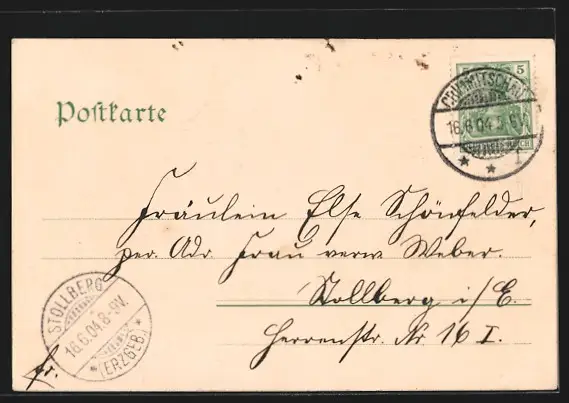 Postkarte
5
CRIMMITSCHAU
16.6.04.
Fräulein Else Schönfelder,
per. Adr. Frau verw. Weber.
Stollberg i/E.
Herrenstr. Nr 16 I.
STOLLBERG
16.6.04.8-9V.
* (ERZGEB) *
fr.